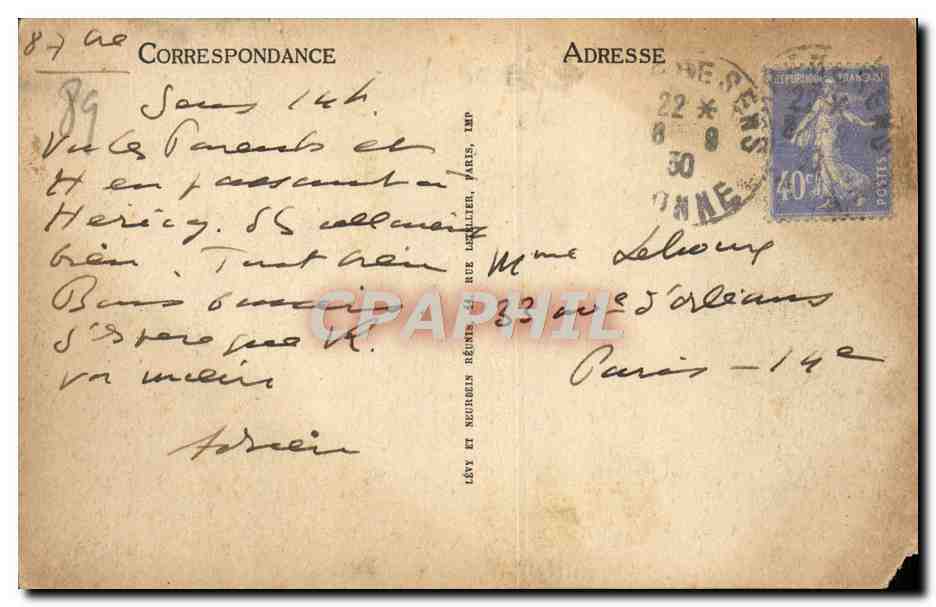 87 ue
89
CORRESPONDANCE
Sens 14h.
Vu les Parents et
H en passant à
Hericy. Ils allaient
bien. Tout bien
Bons baisers
J'espère que R.
va mieux
Adrien
LÉVY ET NEURDEIN RÉUNIS, RUE LETELLIER, PARIS, IMP
ADRESSE
SENS
22 *
8 9
30
YONNE
RÉPUBLIQUE FRANÇAISE
40c
POSTES
Mme Lehoux
33 ave d'orléans
Paris - 14e
CPAPHIL